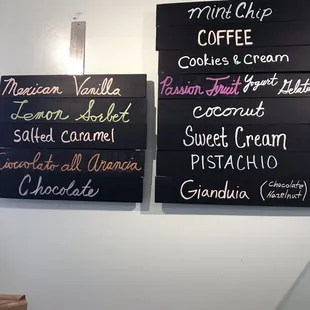 Mexican Vanilla
Lemon Sorbet
Salted Caramel
Cioccolato all Arancia
Chocolate
mint Chip
COFFEE
Cookies & Cream
Passion Fruit Yogurt Gelato
Coconut
Sweet Cream
PISTACHIO
Gianduia (Chocolate Hazelnut)